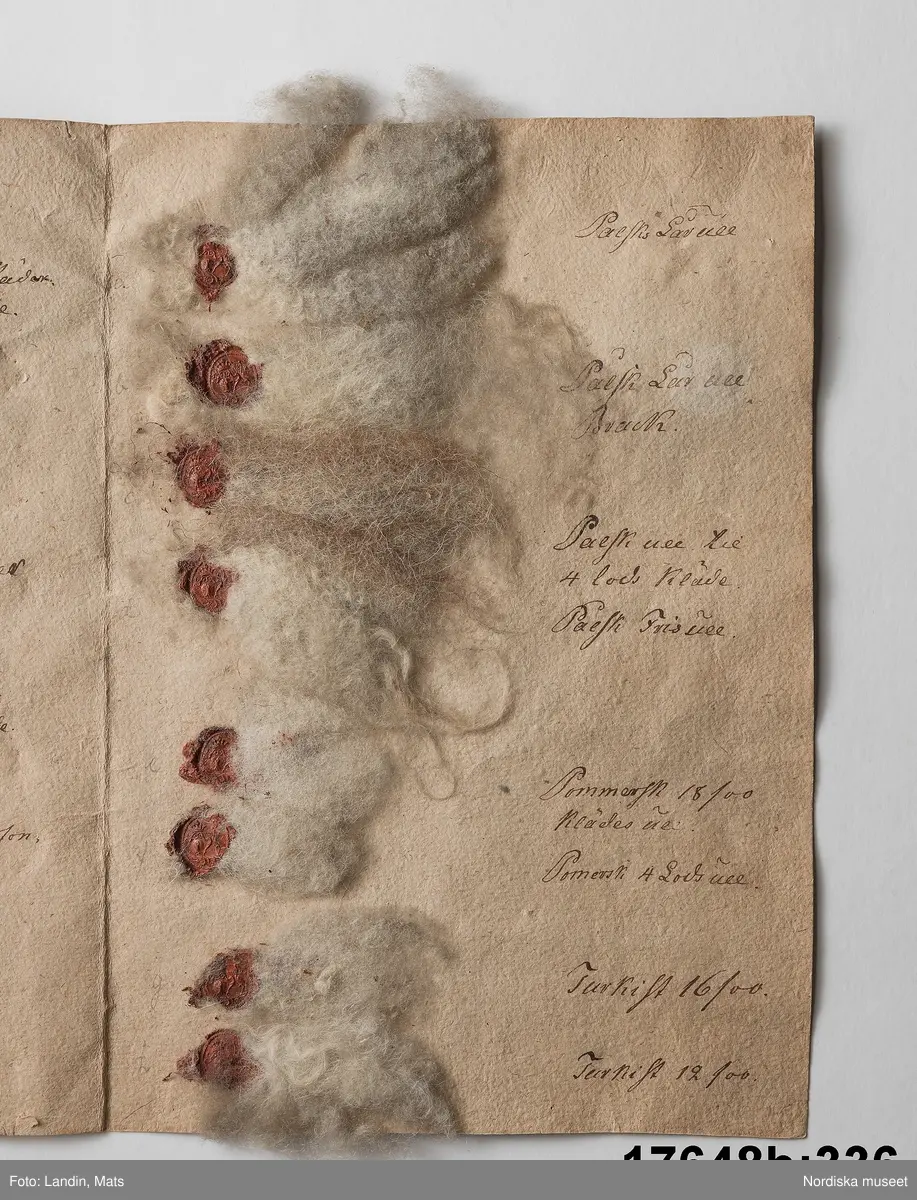 läder.
e.
e.
son,
Palsk Lär ull
Pålsk Lär ull
Brack.
Palsk ull til
4 lods Kläde.
Palsk Fris ull.
Pommersk 18 /oo
Klädes ull.
Pomersk 4 Lods ull.
Turkist 16 /oo.
Turkist 12 /oo.
17648b:236
Foto: Landin, Mats
Nordiska museet